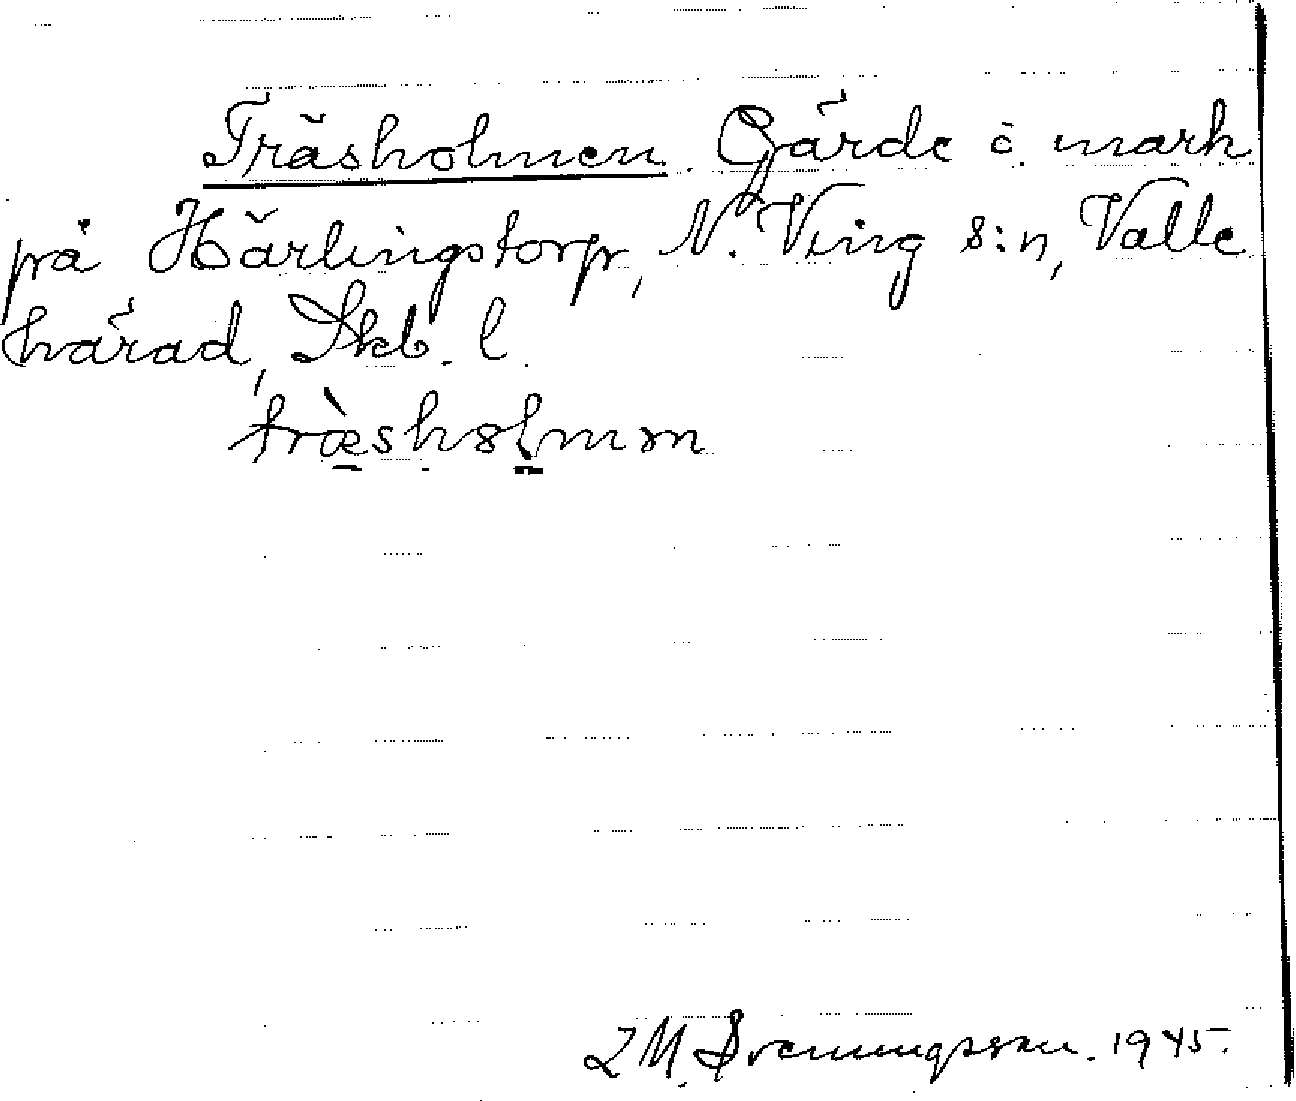 Träsholmen. Gärde o. mark
på Härlingstorp, N. Ving s:n, Valle
härad, Skb. l.
træ̀shɷlmən
I. M. Svenungsson. 1945.